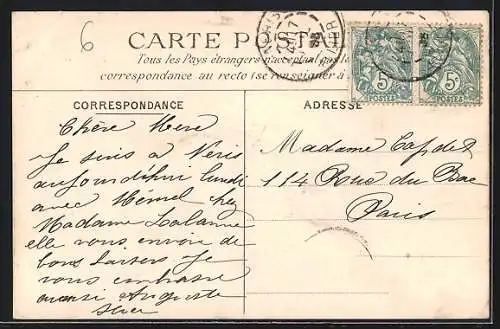 6
CARTE P
Tous les Pays étrangers n'acceptent pas le
correspondance au recto (se renseigner à
CORRESPONDANCE
Chère Mère
Je suis à Neris
aujourd'hui lundi
avec
Madame Lalanne
elle vous envoie de
bons baisers Je
vous embrasse
aussi Auguste
ADRESSE
Madame Capdet
114 Rue du Bac
Paris
5c 5c
POSTES POSTES